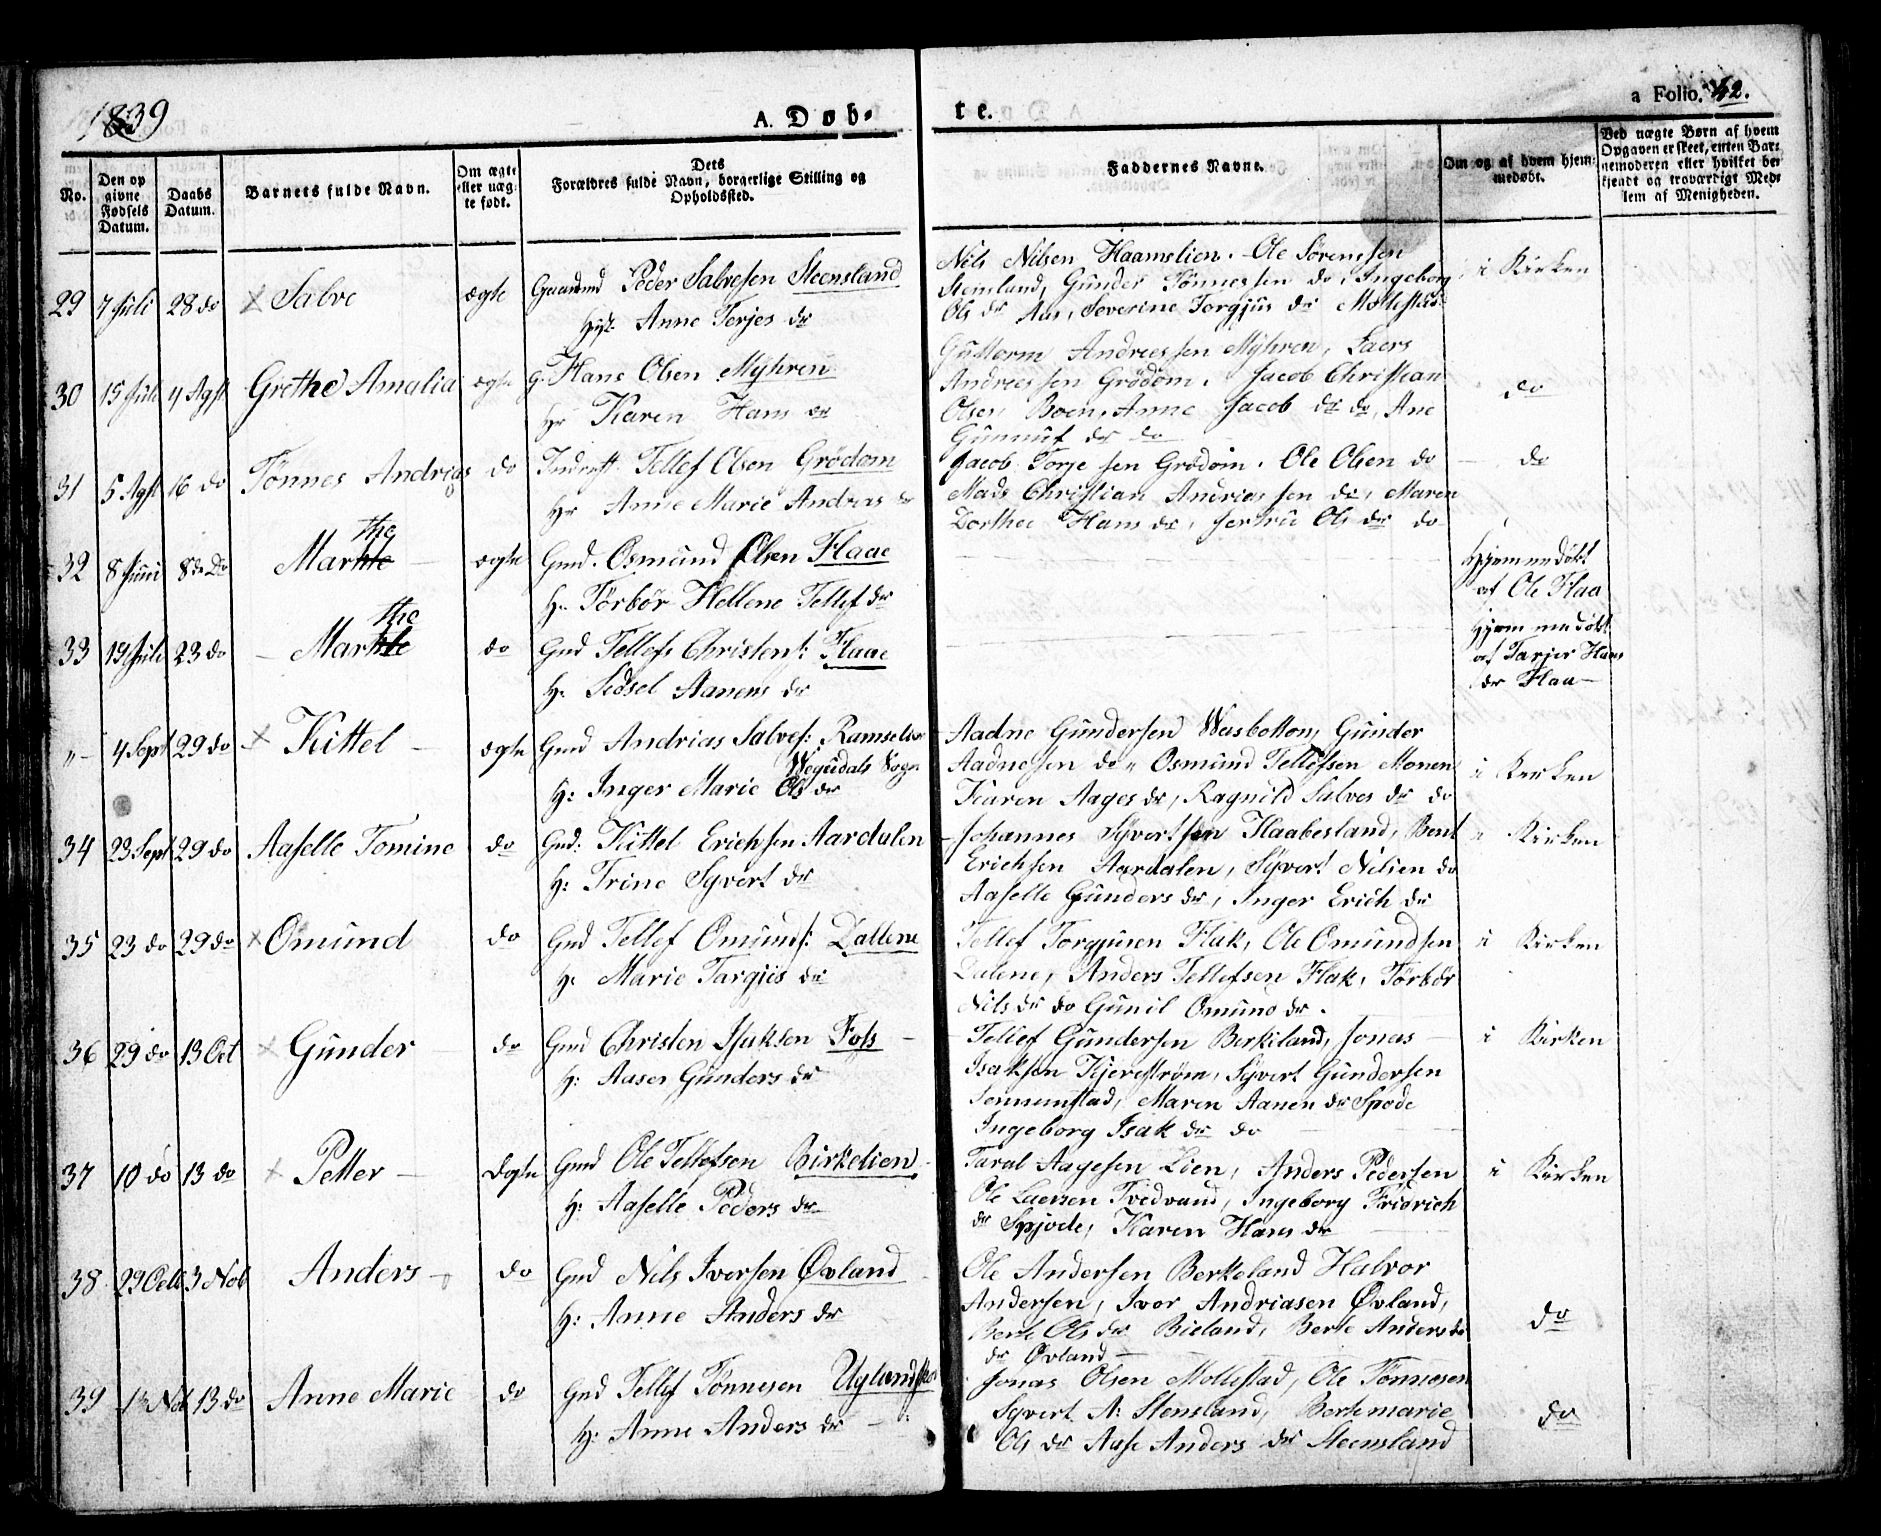 1839
A. Døb-
te.
a Folio. 42.
No.
Den op
givne
Fødsels
Datum.
Daabs
Datum.
Barnets fulde Navn.
Om ægte
eller uæg-
te født.
Dets
Forældres fulde Navn, borgerlige Stilling og
Opholdssted.
Faddernes Navne.
Om og af hvem hjem-
medøbt.
Ved uægte Børn af hvem
Opgaven er skeet, enten Bar-
nemoderen eller hvilket be-
kjendt og troværdigt Med-
lem af Menigheden.
29 7 Juli 28 do Salve ægte Gaardmd Peder Salvesen Steensland
Hst: Anne Terjes dr
Nils Nilsen Haamelien. Ole Sørenssen
Stensland, Gunder Tønnessen do, Ingeborg
Ols dr Aas, Severine Torgjus dr Mollestad
i Kirken
30 15 Juli 4 Agst Grethe Amalia ægte G. Hans Olsen Myhren
Hr Karen Hans dr
Guttorm Andreessen Myhren, Laers
Andreessen Grödom. Jacob Christian
Olsen Boen, Anne Jacob dr do, Ane
Gunnuf dr do
do
31 5 Agst 16 do Tönnes Andrias do Inderst. Tellef Olsen Grödom
Hr Anne Marie Andreas dr
Jacob Torjesen Grödom. Ole Olsen do
Mads Christian Andriassen do, Maren
Dorthee Hans dr, Ols dr do
do
32 8 Juni 8 de Do Marthe ægte Gmd. Osmund Olsen Flaae
H: Törbör Hellene Tellef dr
Hjemmedöbt
af Ole Flaa
33 19 Juli 23 do Marthe do Gmd Tellef Christens: Flaae
H: Sidsel Aanens dr
Hjemmedöbt
af Tarjer Hans
dr Flaa
"- 4 Sept 29 do Kittel ægte Gmd Andrias Salves:
Wegusdals Sogn
H: Inger Marie Ols dr
Aadne Gundersen Wasbotton, Gunder
Aadnesen do, Osmund Tellefsen Monen
Karen Aages dr, Ragnild Salves dr do
i Kerken
34 23 Sept 29 do Aaselle Tomine do Gmd: Kittel Erichsen Aardalen
H: Trine Syvert dr
Johannes Syvertsen Haabesland, Bent
Erichsen Aardalen, Syvert Nilsen do
Aaselle Gunders dr, Inger Erich dr
i Kirken
35 23 do 29 do Omund do Gmd Tellef Omunds: Dallene
H: Marie Targus dr
Tellef Torgjusen Flak, Ole Omundsen
Dalene, Anders Tellefsen Flak, Törbör
Nils dr do Gunil Omund dr.
i Kirken
36 29 do 13 Oct Gunder do Gmd Christen Isaksen Foss
H: Aaser Gunders dr
Tellef Gundersen Berkeland, Jonas
Isaksen Kjerestrøm, Syvert Gundersen
Sennumstad, Maren Aanen dr Spode
Ingeborg Isak dr do
i Kirken
37 10 do 13 do Petter Ægte Gmd Ole Tellefsen Birkelien
H: Aaselle Peders dr
Taral Aagesen Lien, Anders Pedersen
Ole Laersen Tvedvand, Ingeborg Fridrich
dr Spjode, Karen Hans dr
i Kirken
38 29 Octb 3 Nob Anders do Gmd Nils Iversen Øvland
H: Anne Anders dr
Ole Andersen Berkeland Halvor
Andersen, Iver Andriasen Øvland,
Berte Ols dr Bieland, Berte Anders
dr Øvland
do
39 13 Nob 13 do Anne Marie do Gmd Tellef Tönnesen
H: Anne Anders dr
Jonas Olsen Mollestad, Ole Tönnesen
Syvert A: Stensland, Berte marie
Ols dr Aase Anders dr Steensland
do